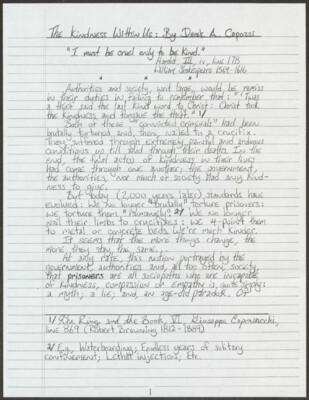 The Kindness Within Us: By Derek A. Capozzi
"I must be cruel only to be kind."
Hamlet, III, iv, line 178
William Shakespeare 1564-1616
* * * *
Authorities and society, writ large, would be remiss
in their duties in failing to remember that: "'Twas
a thief said the last kind word to Christ: Christ took
the kindness and forgave the theft." 1/
Both of these "convicted criminals" had been
brutally tortured and, then, nailed to a crucifix.
They suffered through extremely painful and inhumane
conditions up till and through their death. In the
end, the final act(s) of kindness in their lives
had come through one another; the government,
the authorities, nor much of society had any kind-
ness to give.
But today (2,000 years later) standards have
evolved: We no longer "brutally" torture prisoners:
we torture them "humanely." 2/ We no longer
nail their limbs to crucifixes: we 4-point them
to metal or concrete beds. We're much kinder.
It seems that the more things change, the
more, they stay the same...
At any rate, this notion portrayed by the
government, authorities and, all too often, society,
that prisoners are all sociopaths who are incapable
of kindness, compassion or empathy is, quite simply:
a myth; a lie; and, an age-old paradox. Of
1/ The Ring and the Book, VI. Giuseppe Caponsacchi,
line 869 (Robert Browning 1812-1889)
2/ E.g., Waterboarding; Endless years of solitary
confinement; Lethal injections; Etc.
1